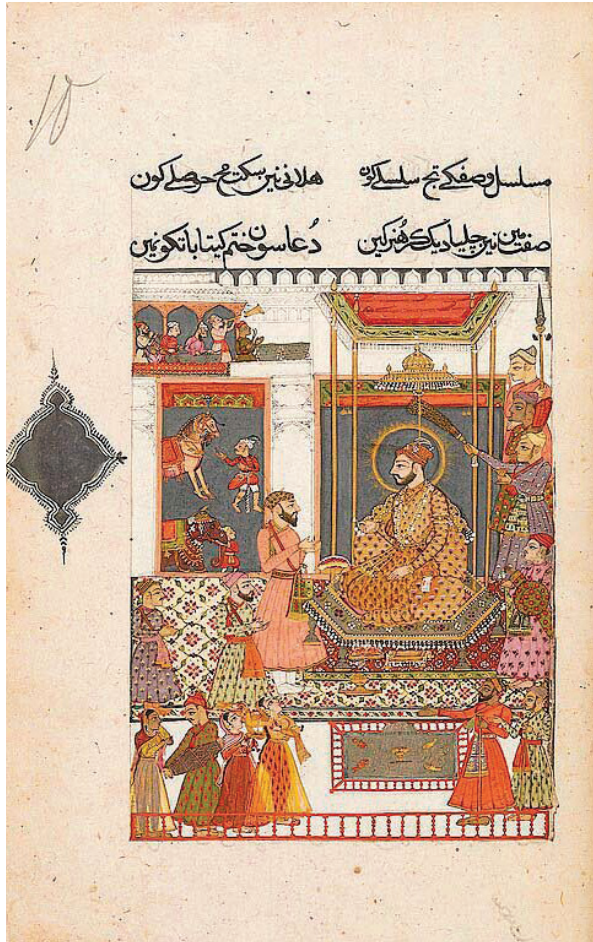 مسلسل وصف کے تج سلسلے کوں هلانی نیں سکت مج حوصلے کون
صفت میں نیر چلیا دیک کر هنر کیں دُعا سوں ختم کیتا بات کو میں